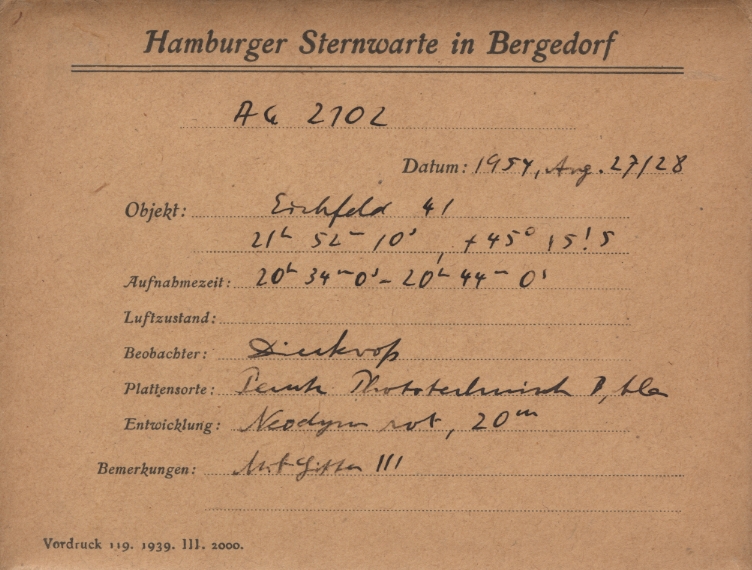 Hamburger Sternwarte in Bergedorf
AG 2702
Datum: 1954, Aug. 27/28
Objekt: Eichfeld 41
21h 52m 10s, +45° 15!5
Aufnahmezeit: 20h 34m 0s – 20h 44m 0s
Luftzustand:
Beobachter: Dieckvoß
Plattensorte: Perutz Phototechnisch B,
Entwicklung: Neodym rot, 20m
Bemerkungen: Mit Gitter III
Vordruck 119. 1939. III. 2000.